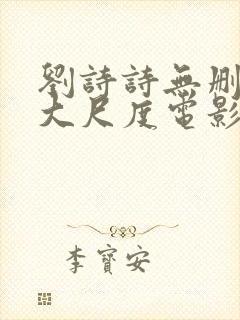 劉詩詩無刪
大尺度電影
李寶安